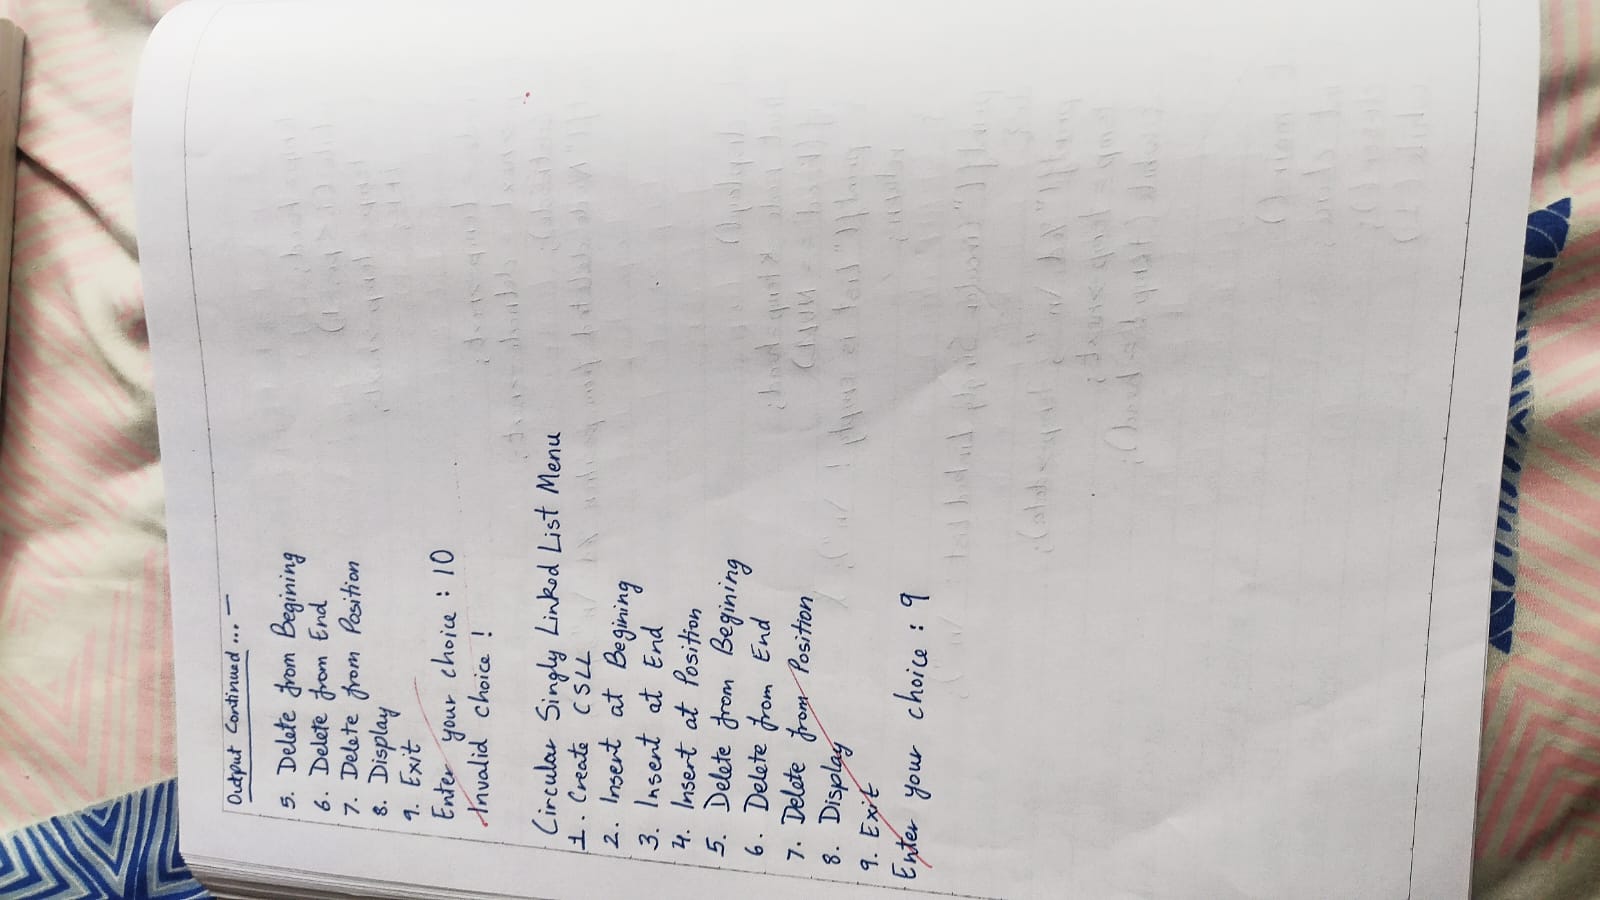 Output Continued... —
5. Delete from Begining
6. Delete from End
7. Delete from Position
8. Display
9. Exit
Enter your choice : 10
Invalid choice !
Circular Singly Linked List Menu
1. Create CSLL
2. Insert at Begining
3. Insert at End
4. Insert at Position
5. Delete from Begining
6. Delete from End
7. Delete from Position
8. Display
9. Exit
Enter your choice : 9